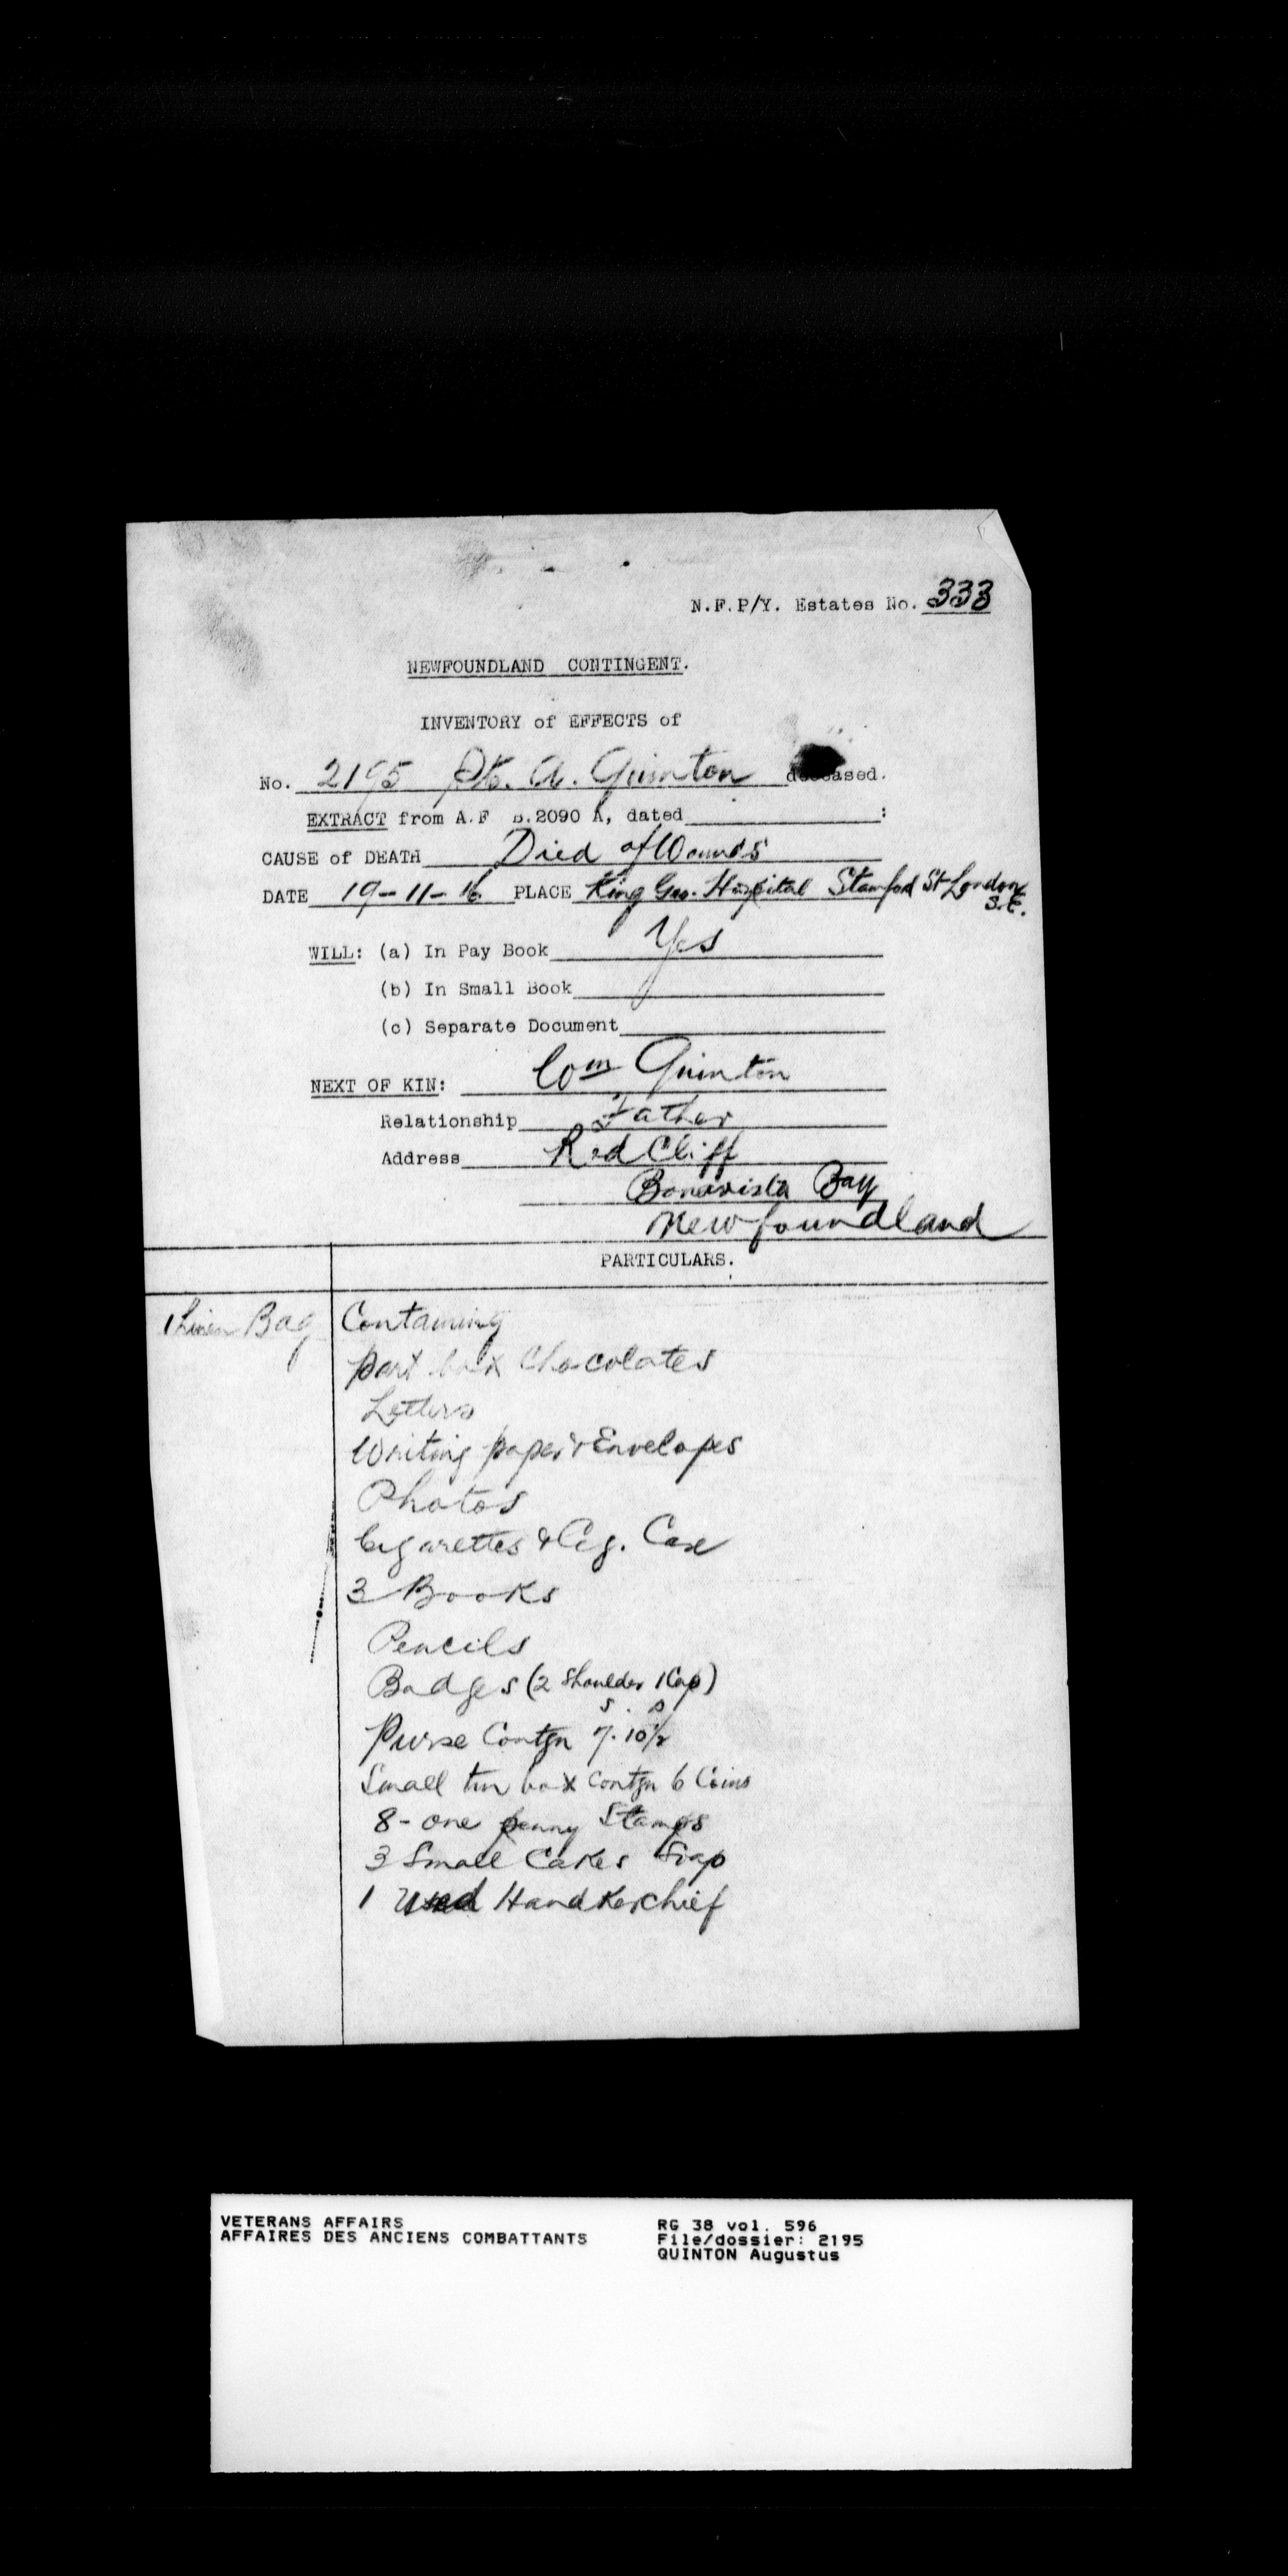 N.F.P/Y. Estates No. 333
NEWFOUNDLAND CONTINGENT.
INVENTORY of EFFECTS of
No. 2195 Pte. A. Quinton deceased.
EXTRACT from A.F B.2090 A, dated :
CAUSE of DEATH Died of Wounds
DATE 19-11-16 PLACE King Geo. Hospital Stamford St London
S.E.
WILL: (a) In Pay Book Yes
(b) In Small Book
(c) Separate Document
NEXT OF KIN: Wm Quinton
Relationship Father
Address Red Cliff
Bonavista Bay
Newfoundland
PARTICULARS.
1 Linen Bag Containing
part box Chocolates
Letters
Writing paper & Envelopes
Photos
Cigarettes & Cig. Case
3 Books
Pencils
Badges (2 Shoulder 1 Cap)
s. D
Purse Contgn 7.10½
Small tin box Contgn 6 Coins
8 - one penny Stamps
3 Small Cakes Soap
1 Used Handkerchief
VETERANS AFFAIRS RG 38 vol. 596
AFFAIRES DES ANCIENS COMBATTANTS File/dossier: 2195
QUINTON Augustus